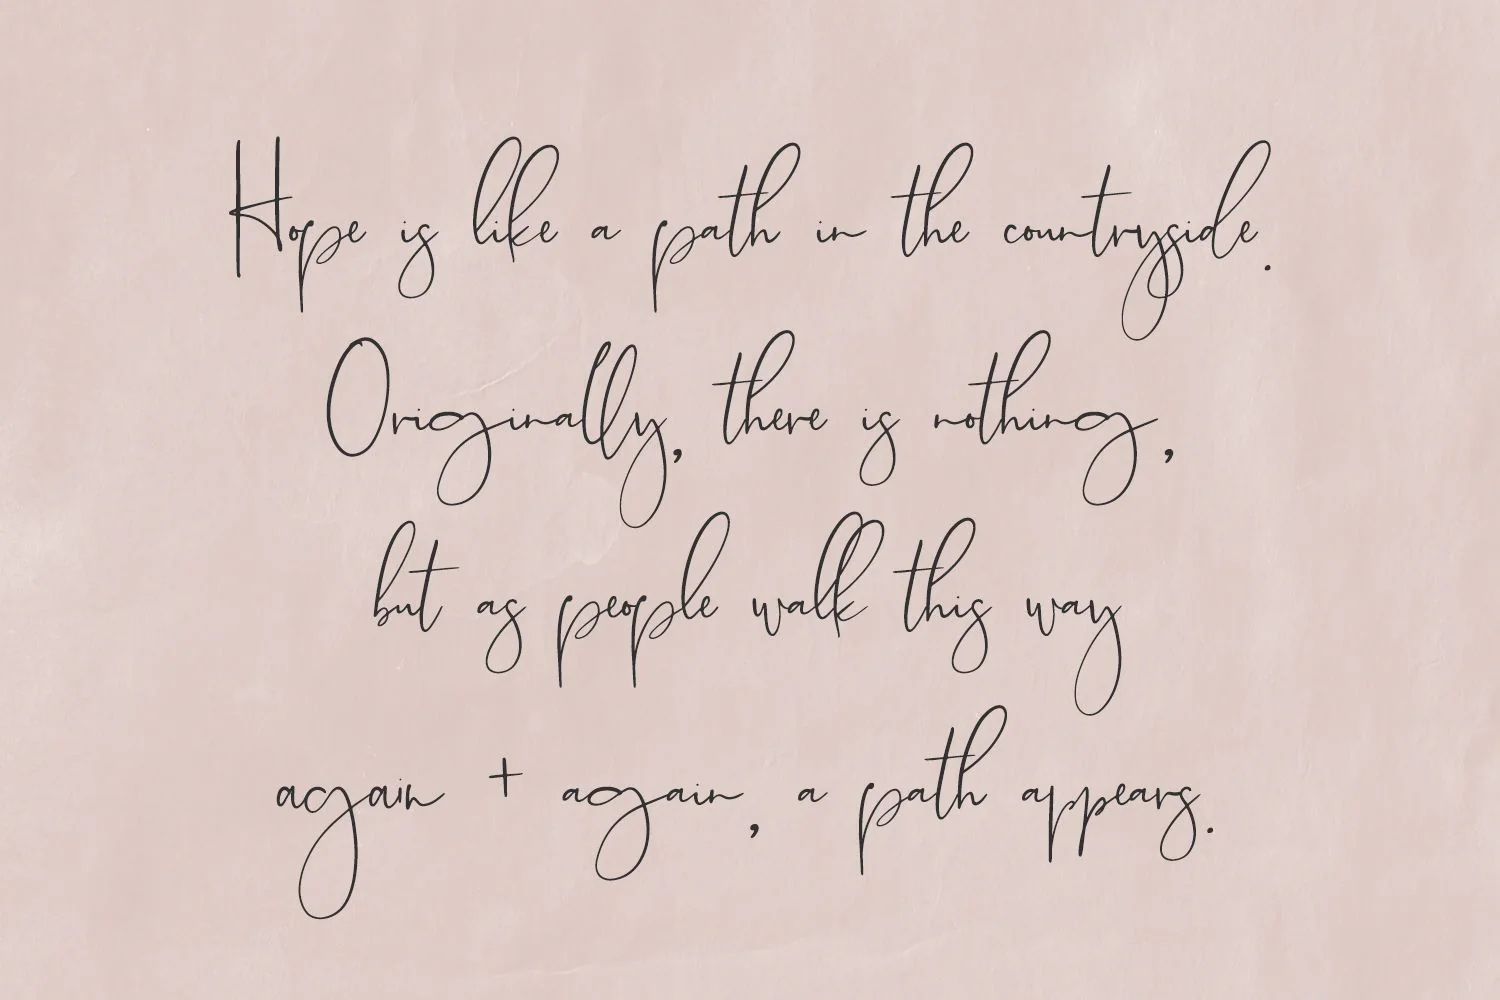 Hope is like a path in the countryside.
Originally, there is nothing,
but as people walk this way
again + again, a path appears.